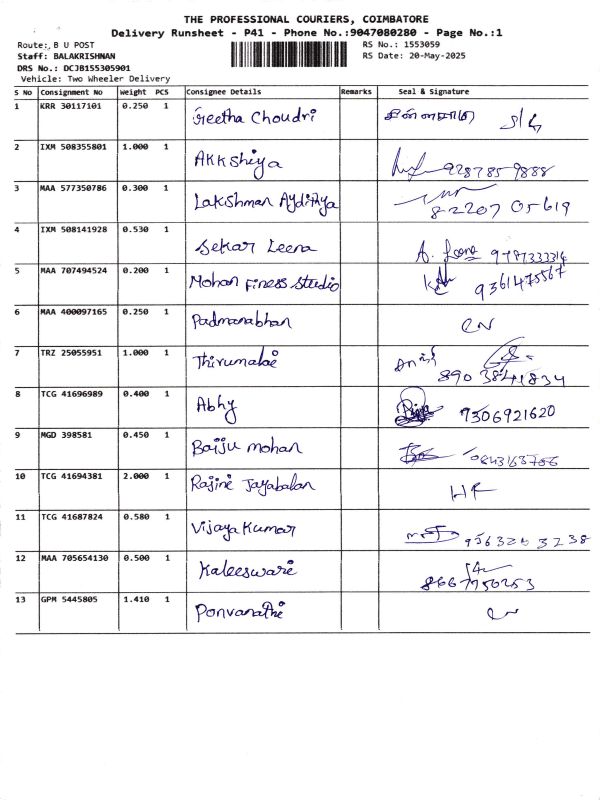 THE PROFESSIONAL COURIERS, COIMBATORE
Delivery Runsheet - P41 - Phone No.:9047080280 - Page No.:1
Route:, B U POST RS No.: 1553059
Staff: BALAKRISHNAN RS Date: 20-May-2025
DRS No.: DCJB155305901
Vehicle: Two Wheeler Delivery
S No Consignment No Weight PCS Consignee Details Remarks Seal & Signature
1 KRR 30117101 0.250 1 Geetha Choudri
2 IXM 508355801 1.000 1 Akkshiya 9287859888
3 MAA 577350786 0.300 1 Lakshman Aydithya 82207 05619
4 IXM 508141928 0.530 1 Sekar Leena A. Leena
5 MAA 707494524 0.200 1 Mohan Finess Studio 9361475567
6 MAA 400097165 0.250 1 Padmanabhan
7 TRZ 25055951 1.000 1 Thirumalai 8903841834
8 TCG 41696989 0.400 1 Abhy 7306921620
9 MGD 398581 0.450 1 Baiju mohan
10 TCG 41694381 2.000 1 Rajini Jayabalan
11 TCG 41687824 0.580 1 Vijaya Kumar
12 MAA 705654130 0.500 1 Kaleeswari
8667750253
13 GPM 5445805 1.410 1 Ponvanathi